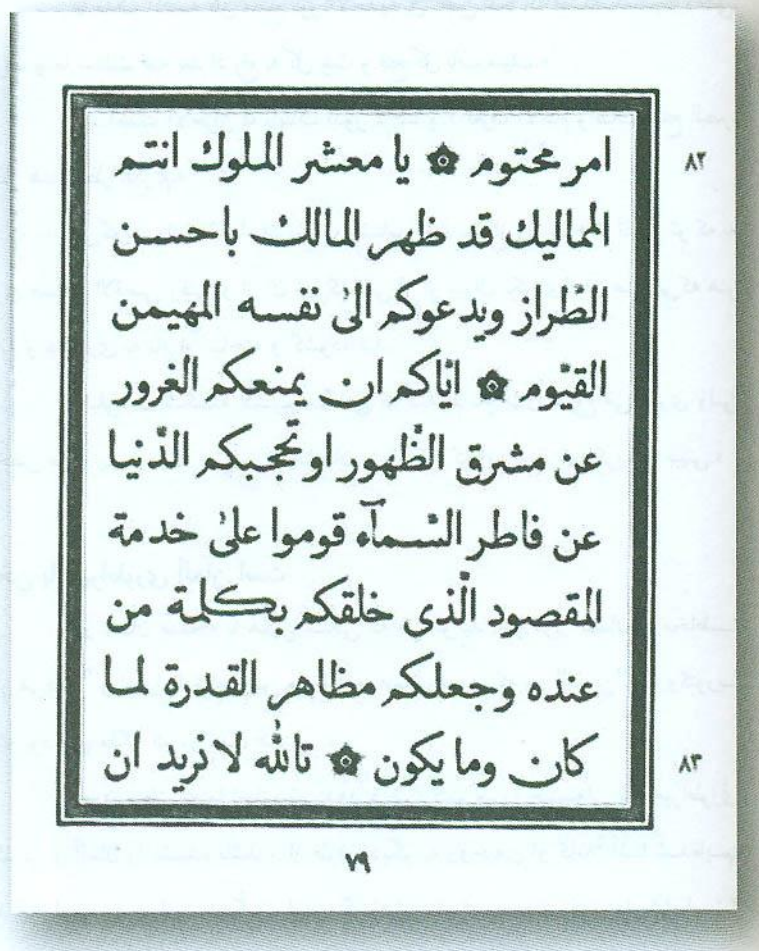 امر محتوم ۞ يا معشر الملوك انتم ٨٢
المماليك قد ظهر المالك باحسن
الطّراز ويدعوكم الىٰ نفسه المهيمن
القيّوم ۞ ايّاكم ان يمنعكم الغرور
عن مشرق الظّهور او تحجبكم الدّنيا
عن فاطر السّمآء قوموا علىٰ خدمة
المقصود الّذى خلقكم بكلمة من
عنده وجعلكم مظاهر القدرة لما
كان وما يكون ۞ تاللّٰه لا نريد ان ٨٣
٧٩